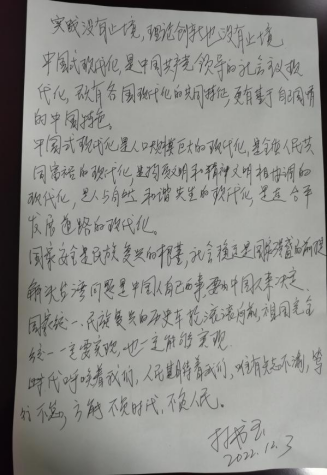 实践没有止境，理论创新也没有止境
中国式现代化，是中国共产党领导的社会主义现
代化，既有各国现代化的共同特征，更有基于自己国情
的中国特色。
中国式现代化是人口规模巨大的现代化，是全体人民共
同富裕的现代化，是物质文明和精神文明相协调的
现代化，是人与自然和谐共生的现代化，是走和平
发展道路的现代化。
国家安全是民族复兴的根基，社会稳定是国家强盛的前提
解决台湾问题是中国人自己的事，要由中国人来决定
国家统一、民族复兴的历史车轮滚滚向前，祖国完全
统一一定要实现，也一定能够实现
时代呼唤着我们，人民期待着我们，唯有矢志不渝，笃
行不怠，方能不负时代，不负人民。
2022.12.3